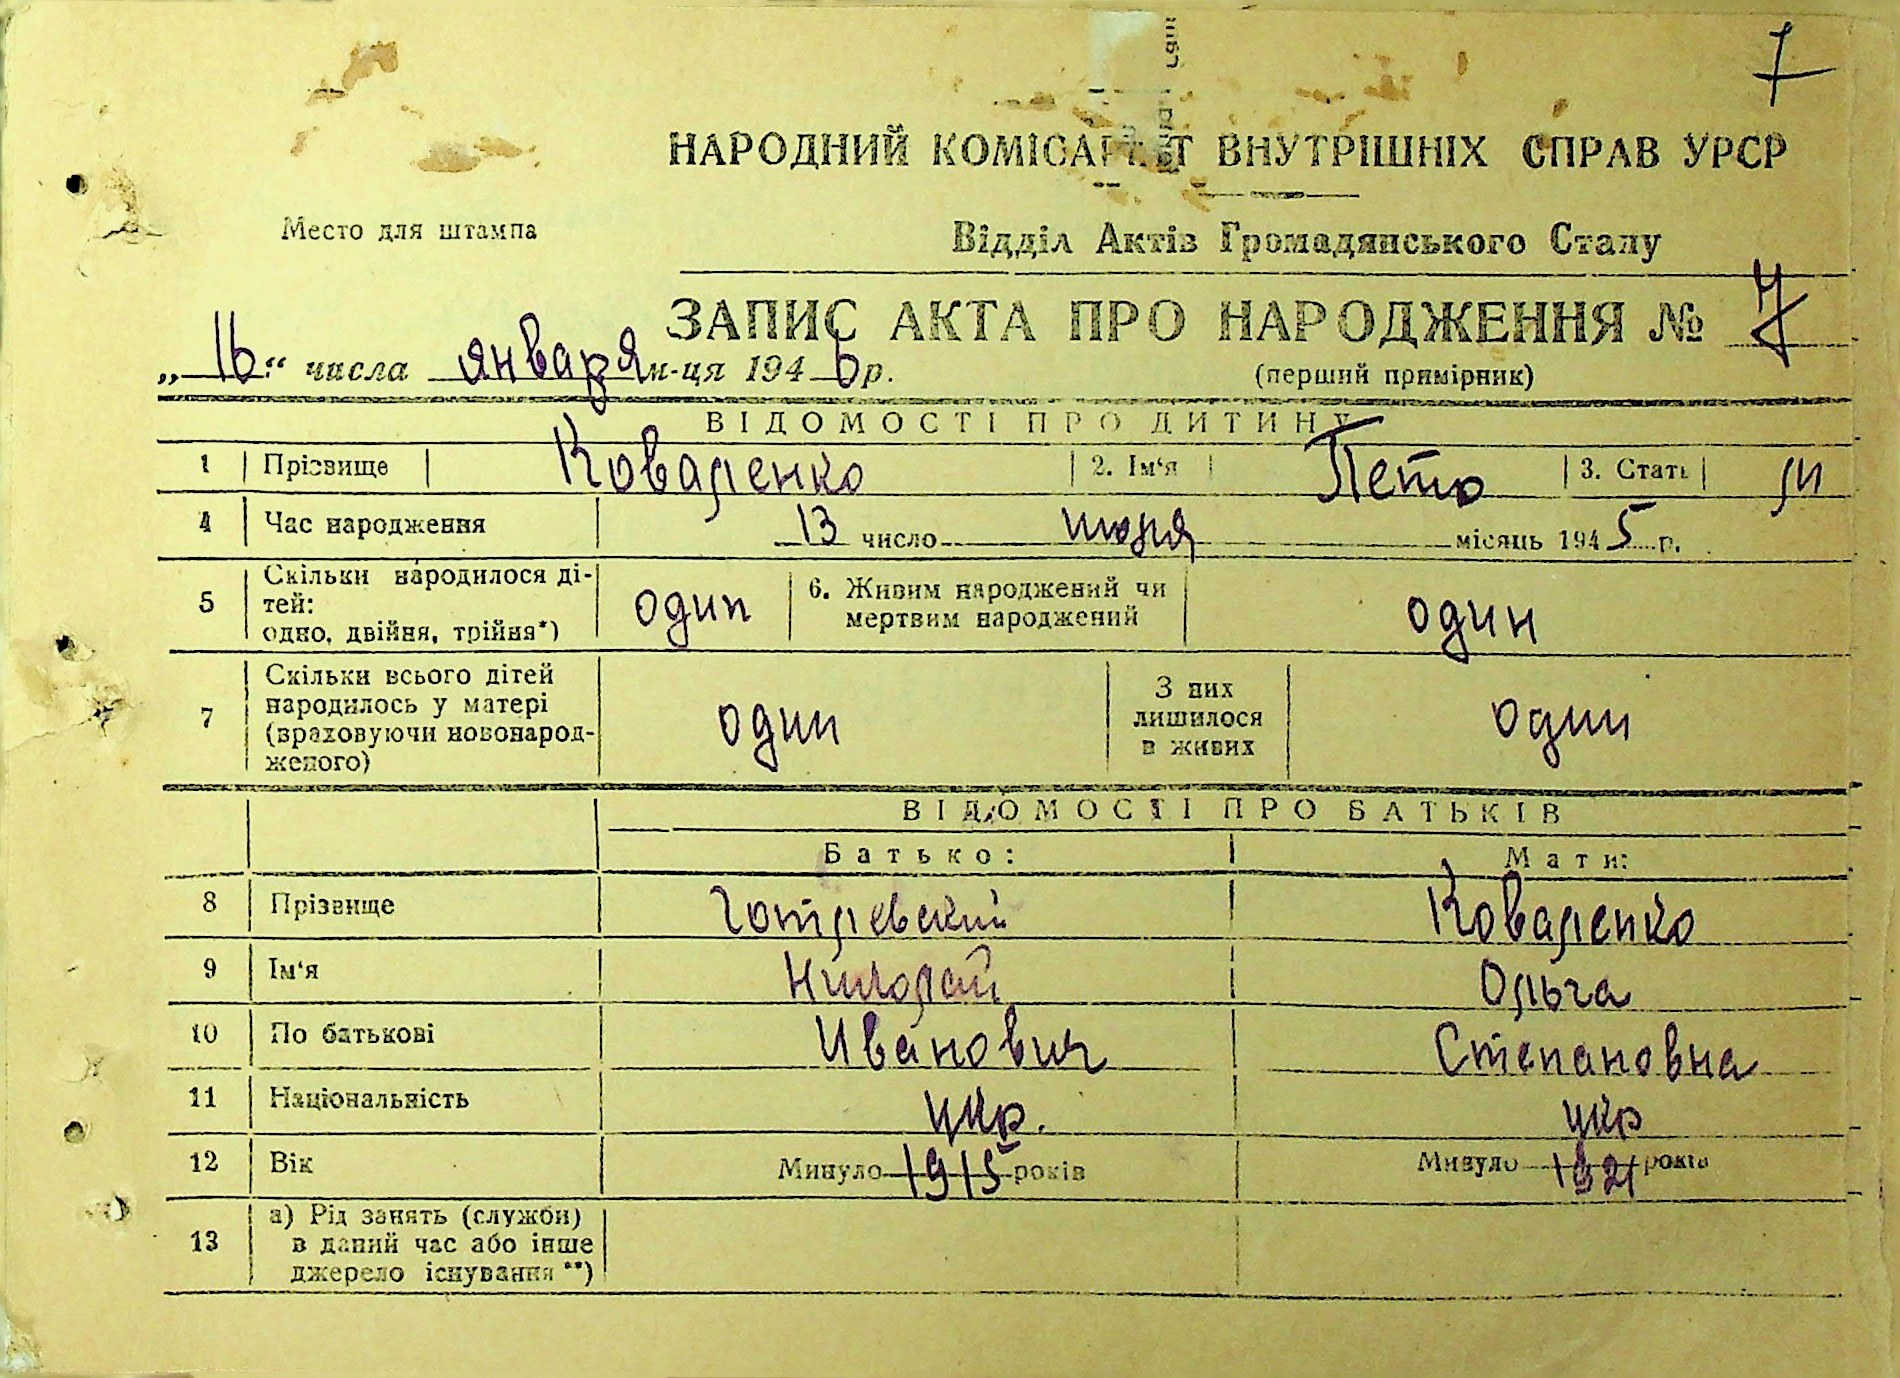 7
НАРОДНИЙ КОМІСАРІАТ ВНУТРІШНІХ СПРАВ УРСР
Место для штампа
Відділ Актів Громадянського Стану
ЗАПИС АКТА ПРО НАРОДЖЕННЯ № 7
„16“ числа января м-ця 1946 р.
(перший примірник)
ВІДОМОСТІ ПРО ДИТИНУ
1 Прізвище Коваленко 2. Ім‘я Петро 3. Стать м
4 Час народження 13 число июля місяць 1945 р.
5 Скільки народилося ді-
тей:
одно, двійня, трійня*) один
6. Живим народжений чи
мертвим народжений один
7 Скільки всього дітей
народилось у матері
(враховуючи новонарод-
женого) один
З них
лишилося
в живих один
ВІДОМОСТІ ПРО БАТЬКІВ
Батько: Мати:
8 Прізвище Коваленко
9 Ім‘я Николай Ольга
10 По батькові Иванович Степановна
11 Національність укр. укр
12 Вік Минуло 1915 років Минуло 1921 років
13 а) Рід занять (служби)
в даний час або інше
джерело існування **)